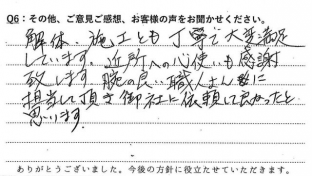 Q6：その他、ご意見ご感想、お客様の声をお聞かせください。
解体・施工とも丁寧で大変満足
しています。近所への心使いも感謝
致します 腕の良い職人さん達に
担当して頂き御社に依頼して良かったと
思います。
ありがとうございました。今後の方針に役立たせていただきます。